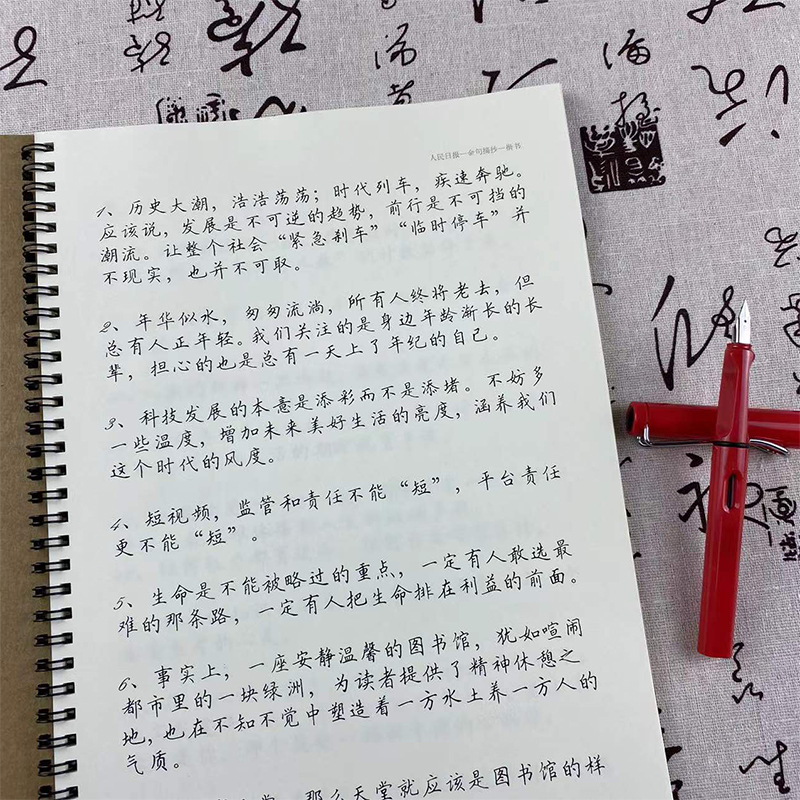 人民日报—金句摘抄—楷书
1、历史大潮，浩浩荡荡；时代列车，疾速奔驰。
应该说，发展是不可逆的趋势，前行是不可挡的
潮流。让整个社会“紧急刹车”“临时停车”并
不现实，也并不可取。
2、年华似水，匆匆流淌，所有人终将老去，但
总有人正年轻。我们关注的是身边年龄渐长的长
辈，担心的也是总有一天上了年纪的自己。
3、科技发展的本意是添彩而不是添堵。不妨多
一些温度，增加未来美好生活的亮度，涵养我们
这个时代的风度。
4、短视频，监管和责任不能“短”，平台责任
更不能“短”。
5、生命是不能被略过的重点，一定有人敢选最
难的那条路，一定有人把生命排在利益的前面。
6、事实上，一座安静温馨的图书馆，犹如喧闹
都市里的一块绿洲，为读者提供了精神休憩之
地，也在不知不觉中塑造着一方水土养一方人的
气质。
那么天堂就应该是图书馆的样